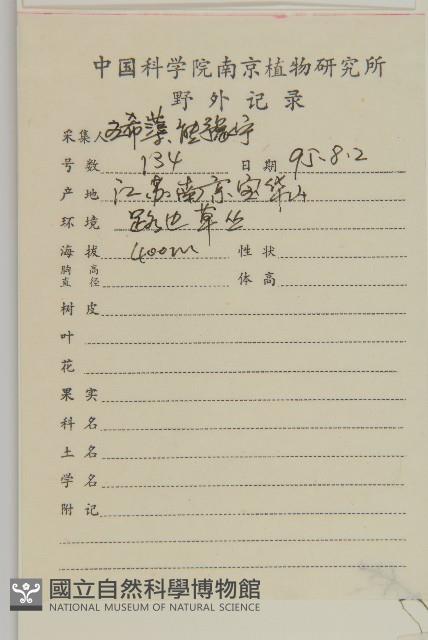 中国科学院南京植物研究所
野外记录
采集人 希 熊豫宁
号数 134 日期 95.8.2
产地 江苏南京宝华山
环境 路边草丛
海拔 400m 性状
胸高直径 体高
树皮
叶
花
果实
科名
土名
学名
附记
國立自然科學博物館
NATIONAL MUSEUM OF NATURAL SCIENCE